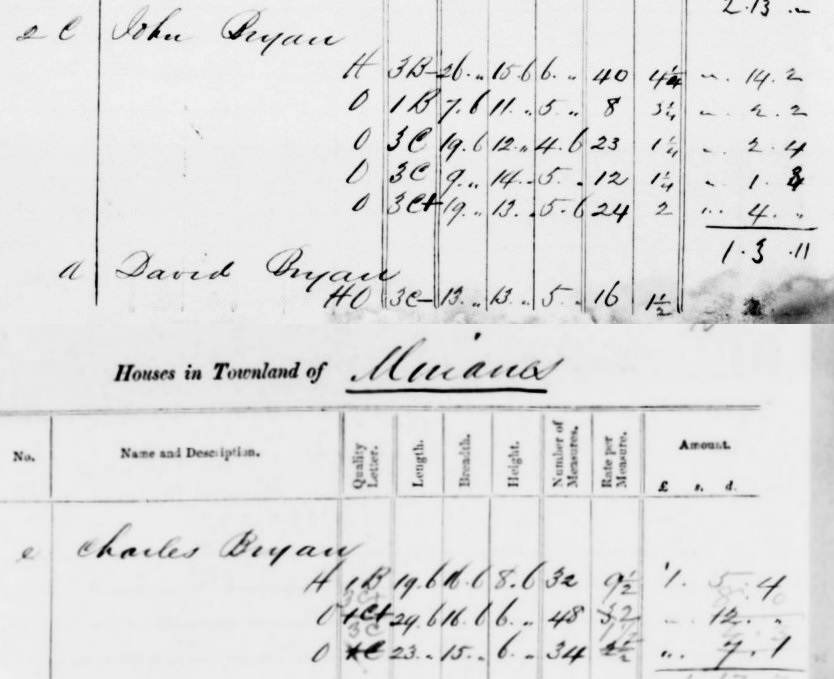 2.13 „
2 C John Bryan
H 3B- 26.„ 15.6 6.„ 40 4¼ „. 14.2
O 1B 7.6 11.„ 5.„ 8 3¼ „. 2.2
O 3C 19.6 12.„ 4.6 23 1¼ „. 2.4
O 3C 9.„ 14.„ 5.„ 12 1¼ „ 1.3
O 3C+ 19.„ 13.„ 5.6 24 2 „. 4.„
1.3.11
a David Bryan
HO 3C- 13.„ 13.„ 5.„ 16 1½
Houses in Townland of
No. Name and Description. Quality Letter. Length. Breadth. Height. Number of Measures. Rate per Measure. Amount. £ s. d.
e Charles Bryan
H 1B 19.6 16.6 8.6 32 9½ 1.5.4
3C+
O 1C+ 29.6 16.6 6.„ 48 „ 12.„
3C
O 1C 23.„ 15.„ 6.„ 34 2½ „. 7.1